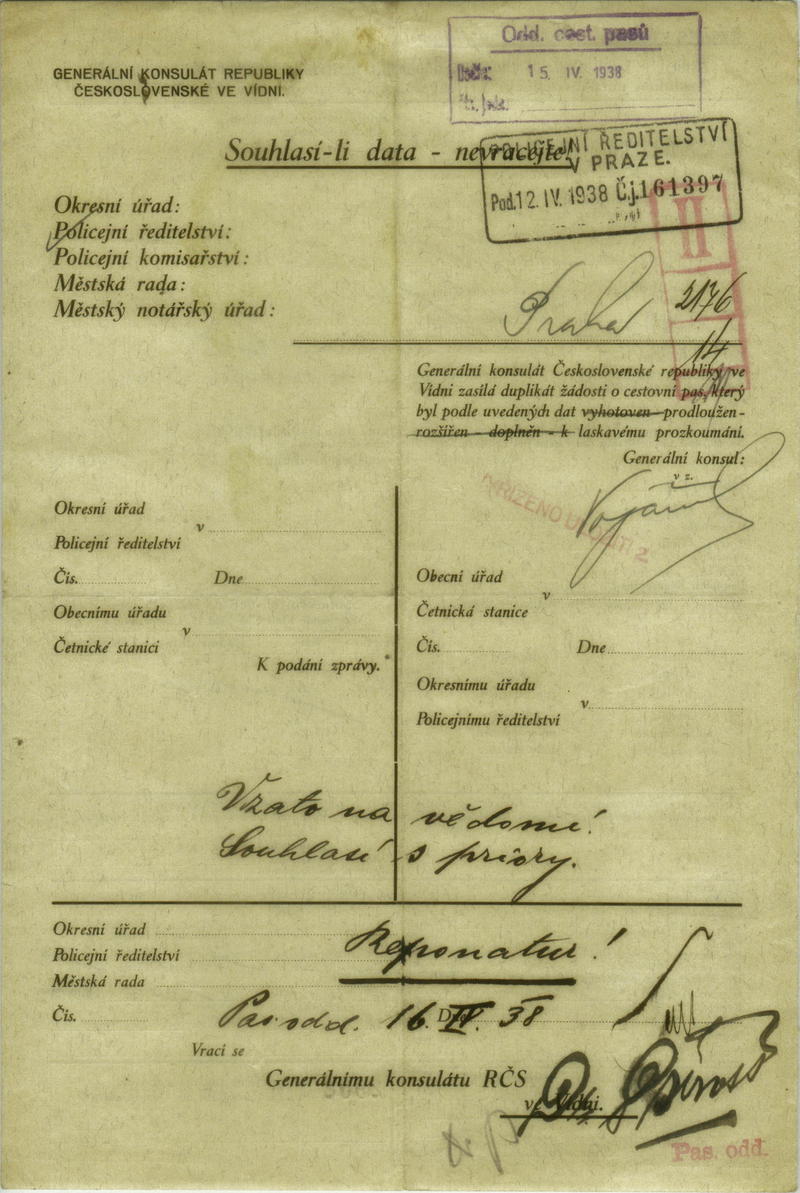 Odd. cest. pasů
Došlo: 15. IV. 1938
GENERÁLNÍ KONSULÁT REPUBLIKY
ČESKOSLOVENSKÉ VE VÍDNI.
POLICEJNÍ ŘEDITELSTVÍ
V PRAZE.
Pod. 12. IV. 1938 Č.j. 161397
Souhlasí-li data - nevracejte!
II
Okresní úřad:
Policejní ředitelství:
Policejní komisařství:
Městská rada:
Městský notářský úřad:
Praha
2176
14
Generální konsulát Československé republiky ve
Vídni zasílá duplikát žádosti o cestovní pas, který
byl podle uvedených dat vyhotoven - prodloužen -
rozšířen - doplněn - k laskavému prozkoumání.
Generální konsul:
v z.
Okresní úřad
v
Policejní ředitelství
Čís. Dne
Obecnímu úřadu
v
Četnické stanici
K podání zprávy.
Obecní úřad
v
Četnická stanice
Čís. Dne
Okresnímu úřadu
v
Policejnímu ředitelství
Vzato na vědomí!
Souhlasí s priory.
Okresní úřad
Policejní ředitelství
Městská rada
Reponatur!
Čís. Pas. odd. 16. IV. 38
Vrací se
Generálnímu konsulátu RČS
ve Vídni.
Pas. odd.